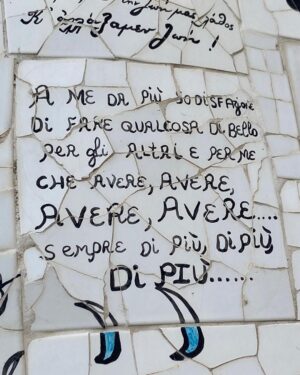 κ' αλλάζαμεν ζωή!
A ME DA PIÙ SODISFAZIONE
DI FARE QUALCOSA DI BELLO
PER GLI ALTRI E PER ME
CHE AVERE, AVERE,
AVERE, AVERE....
SEMPRE DI PIÙ, DI PIÙ,
DI PIÙ......